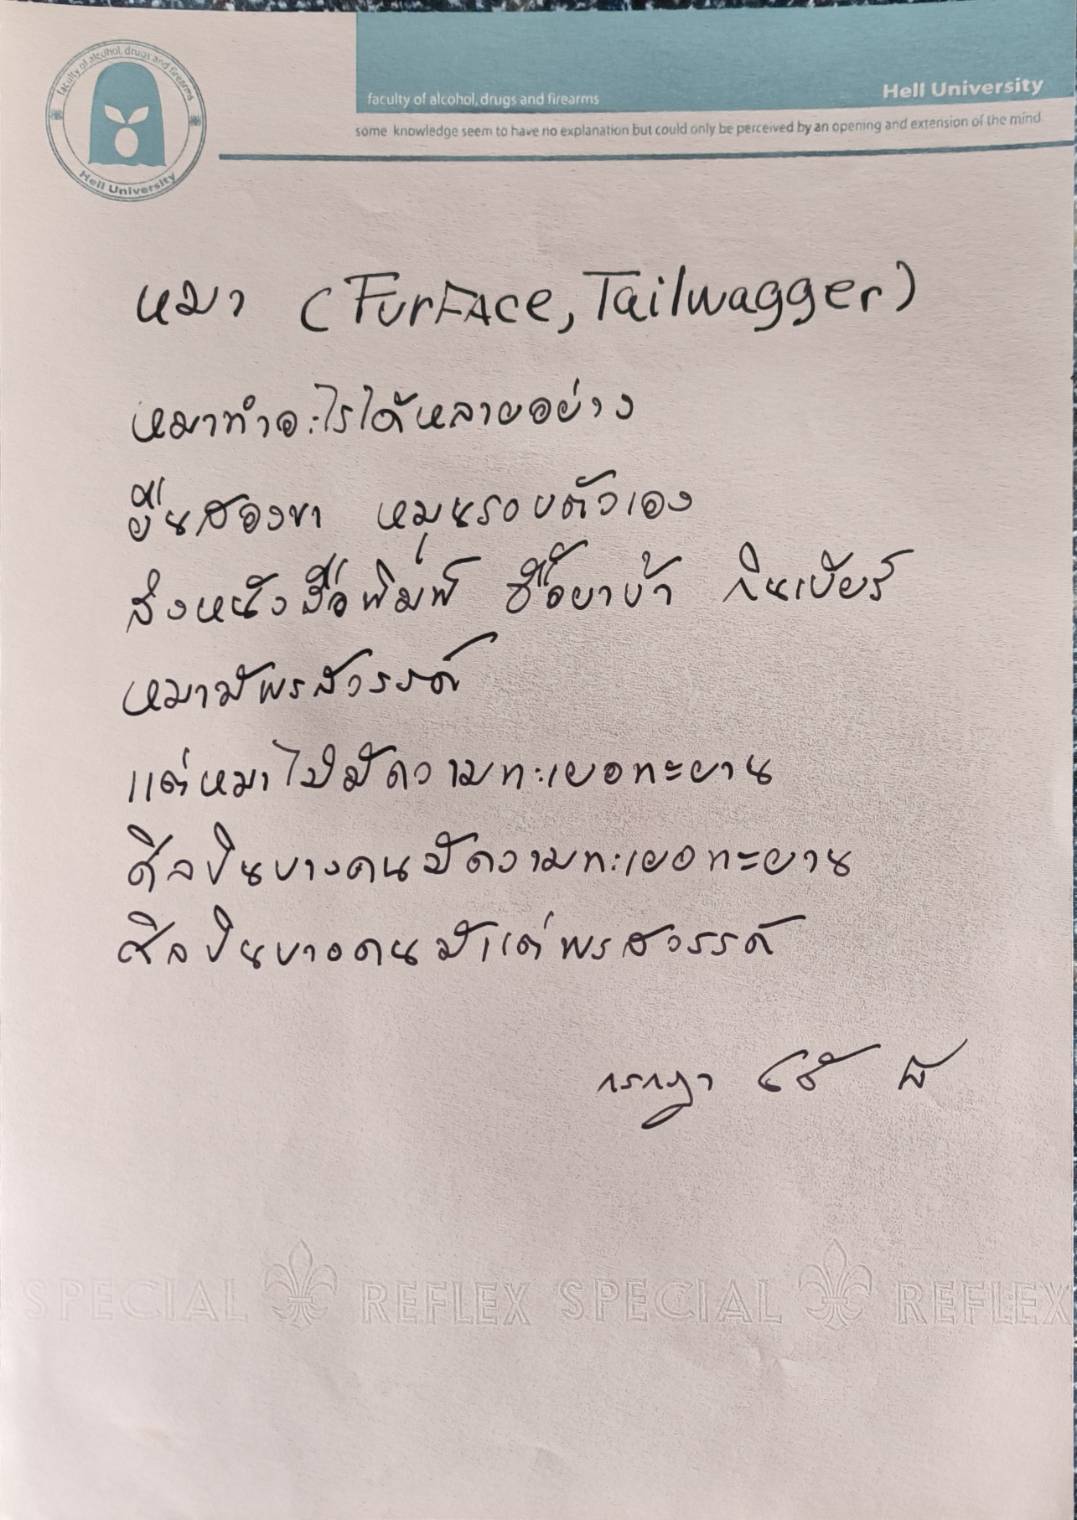 faculty of alcohol, drugs and firearms
Hell University
faculty of alcohol, drugs and firearms
Hell University
some knowledge seem to have no explanation but could only be perceived by an opening and extension of the mind
หมา (FurFAce, Tailwagger)
หมาทำอะไรได้หลายอย่าง
ยืนสองขา หมุนรอบตัวเอง
ส่งหนังสือพิมพ์ ซื้อยาบ้า กินเบียร์
หมามีพรสวรรค์
แต่หมาไม่มีความทะเยอทะยาน
ศิลปินบางคนมีความทะเยอทะยาน
ศิลปินบางคนมีแต่พรสวรรค์
กรกฎา
SPECIAL REFLEX SPECIAL REFLEX